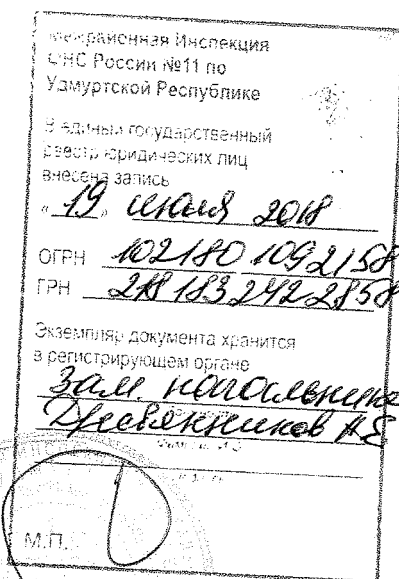 Межрайонная Инспекция
ФНС России №11 по
Удмуртской Республике
В единый государственный
реестр юридических лиц
внесена запись
" 19 " июля 2018
ОГРН 1021801092158
ГРН 2181832422858
Экземпляр документа хранится
в регистрирующем органе
Зам. начальника
Дресвянников А.Е
М.П.